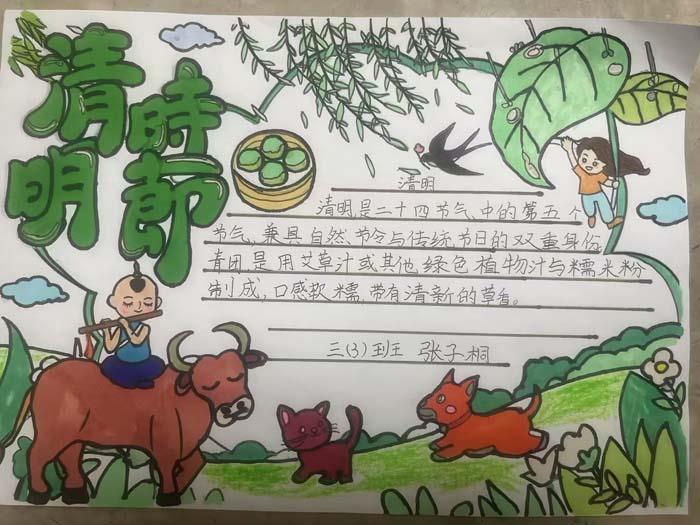 清明
時節
清明
清明是二十四节气中的第五个
节气,兼具自然、节令与传统节日的双重身份
青团是用艾草汁或其他绿色植物汁与糯米粉
制成,口感软糯,带有清新的草香。
三(3)班 张子桐